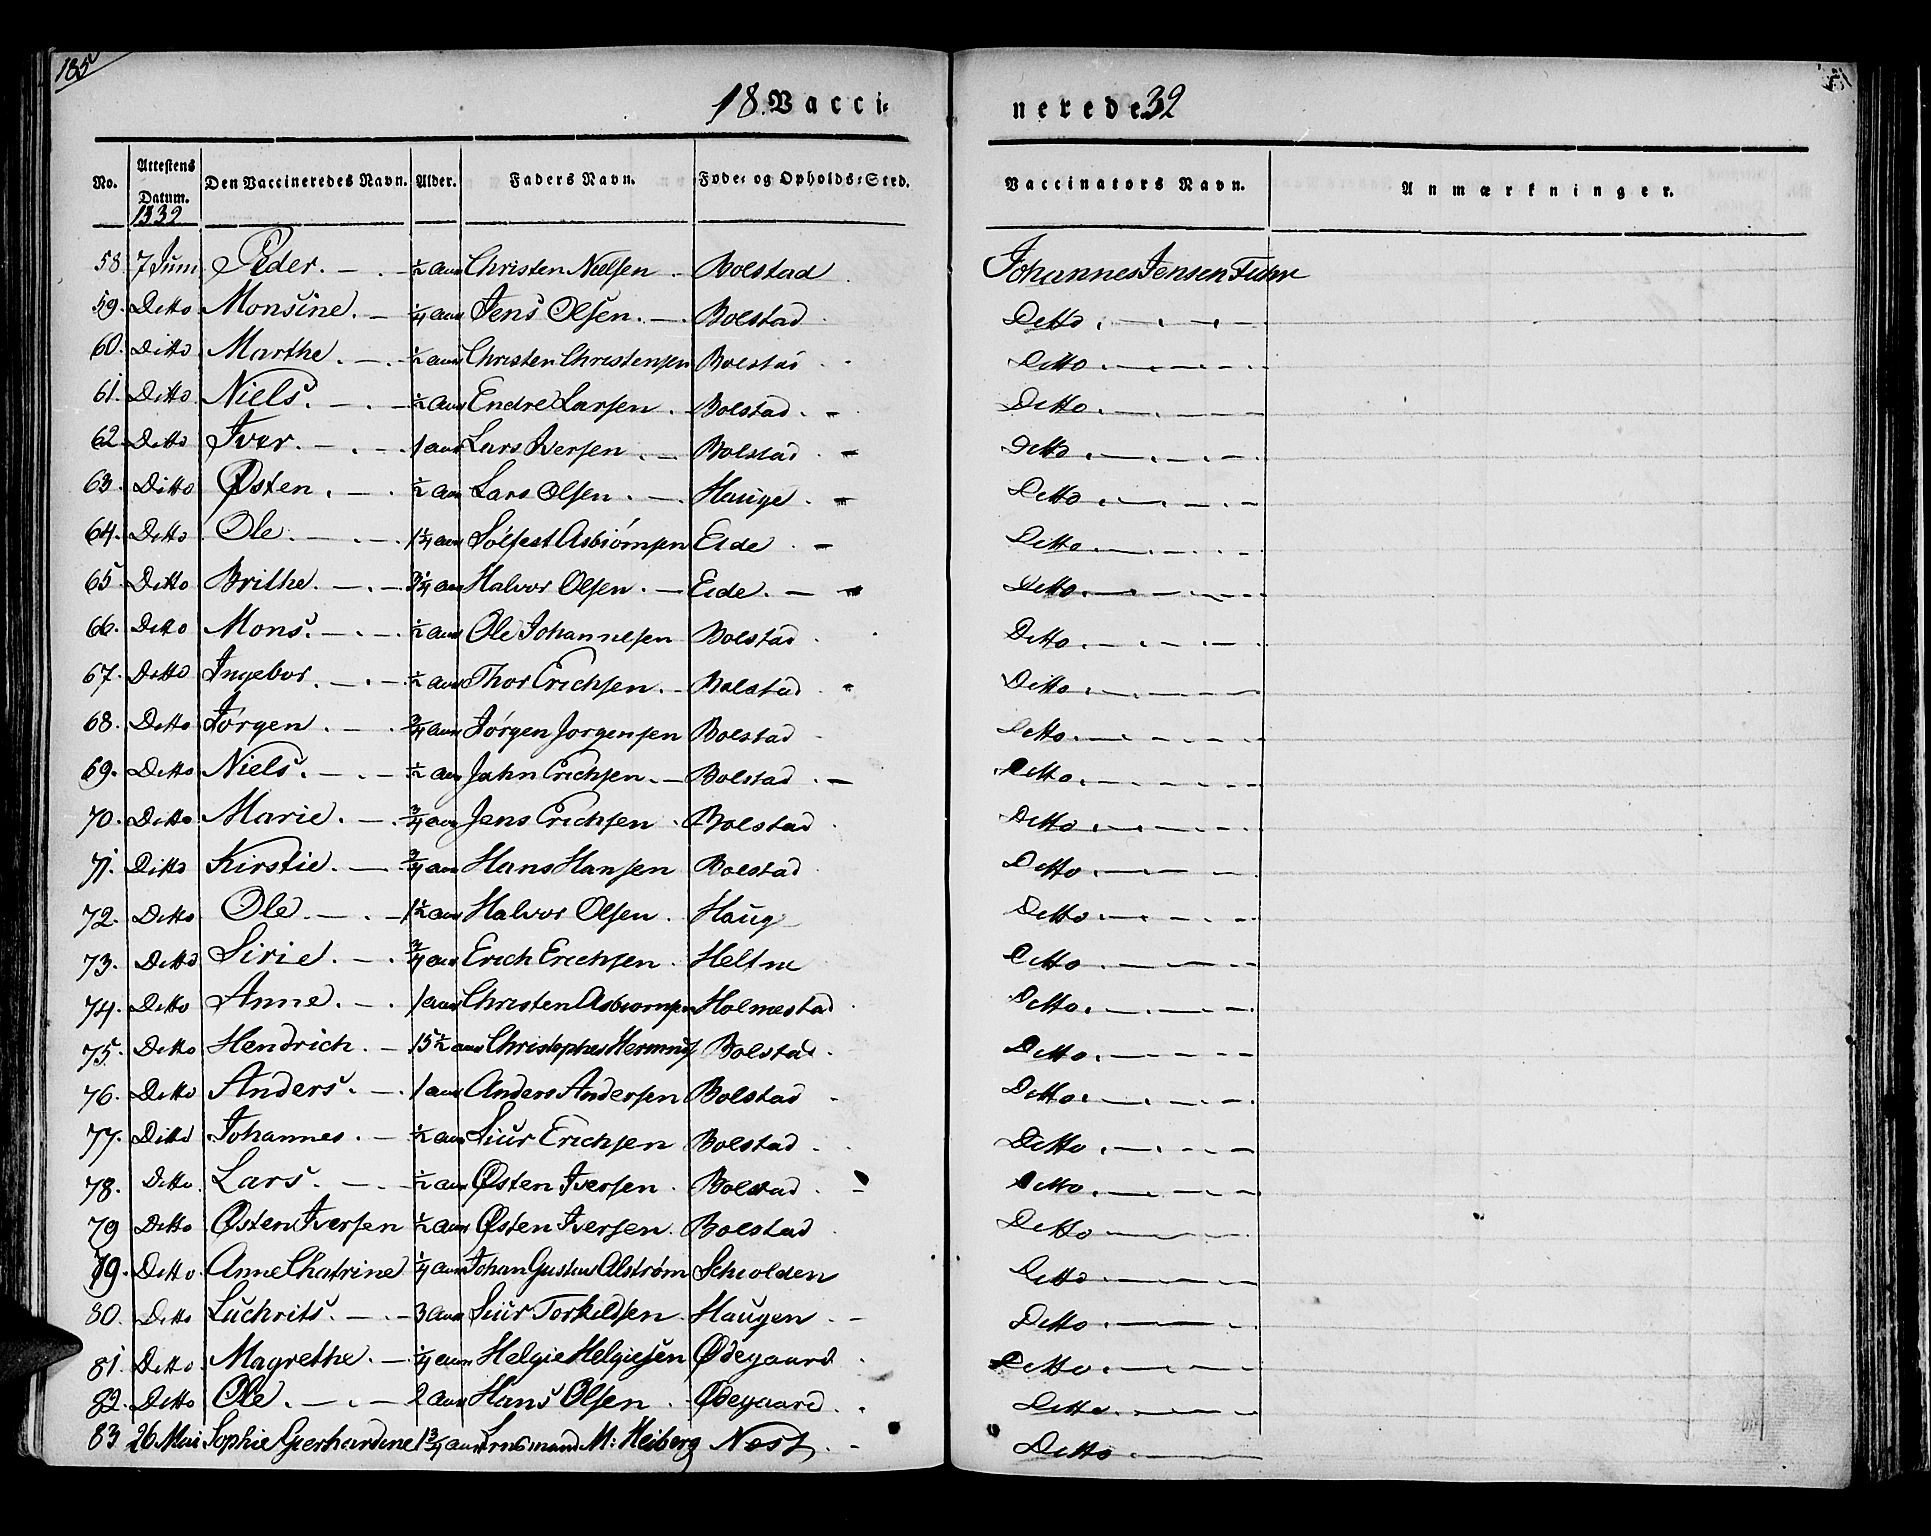 185
18 Vacci=
nerede 32
No. | Attestens Datum. | Den Vaccineredes Navn. | Alder. | Faders Navn. | Føde= og Opholds=Sted. | Vaccinators Navn. | Anmærkninger.
1832
58. 7 Juni Peder. 1/2 aar Christen Nielsen Bolstad Johannes Jensen
59. Ditto Monsine. 1/4 aar Jens Olsen. Bolstad Ditto
60. Ditto Marthe. 1/2 aar Christen Christensen Bolstad Ditto
61. Ditto Niels. 1/2 aar Endre Larsen Bolstad. Ditto
62 Ditto Iver. 1 aar Lars Iversen Bolstad Ditto
63. Ditto Østen. 1/2 aar Lars Olsen. Hauge Ditto
64. Ditto Ole. 1 1/4 aar Sølfest Asbiörnsen Eide Ditto
65 Ditto Brithe. 3 1/4 aar Halvor Olsen. Eide. Ditto
66. Ditto Mons. 1/2 aar Ole Johannesen Bolstad Ditto
67. Ditto Ingebor. 1/2 aar Thor Erichsen. Bolstad Ditto
68. Ditto Jörgen 3/4 aar Jörgen Jorgensen Bolstad Ditto
69. Ditto Niels. 1/2 aar John Erichsen. Bolstad Ditto
70. Ditto Marie. 3/4 aar Jens Erichsen Bolstad Ditto
71. Ditto Kirstie. 3/4 aar Hans Hansen Bolstad Ditto
72. Ditto Ole. 1 1/2 aar Halvor Olsen. Haug Ditto
73. Ditto Sirie. 3/4 aar Erich Erichsen. Heltne Ditto
74. Ditto Anne. 1 aar Christen Asbiornsen Holmestad Ditto
75. Ditto Hendrich. 15 1/2 aar Bolstad. Ditto
76. Ditto Anders. 1 aar Anders Andersen Bolstad Ditto
77. Ditto Johannes. 1/2 aar Siur Erichsen Bolstad Ditto
78. Ditto Lars. 1/2 aar Østen Iversen. Bolstad Ditto
79 Ditto Østen Iversen 1/2 aar Østen Iversen. Bolstad Ditto
79. Ditto Anne Chatrine 1/4 aar Johan Gustav Alström Schiolden Ditto
80. Ditto Luchrits. 3 aar Siur Torkildsen Haugen Ditto
81. Ditto Magrethe. 1/4 aar Helgie Helgiesen Ødegaard Ditto
82. Ditto Ole. 2 aar Hans Olsen Ødegaard Ditto
83 26 Mai Sophie Gierhardine 1 3/4 aar M: Heiberg Næs Ditto